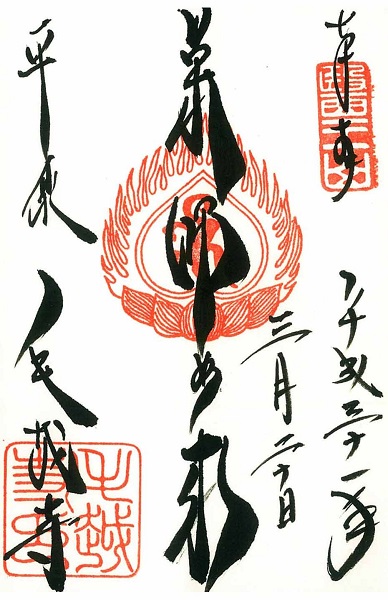 奉拝
平成三十一年
三月二十日
薬師如来
平泉 毛越寺
毛越寺